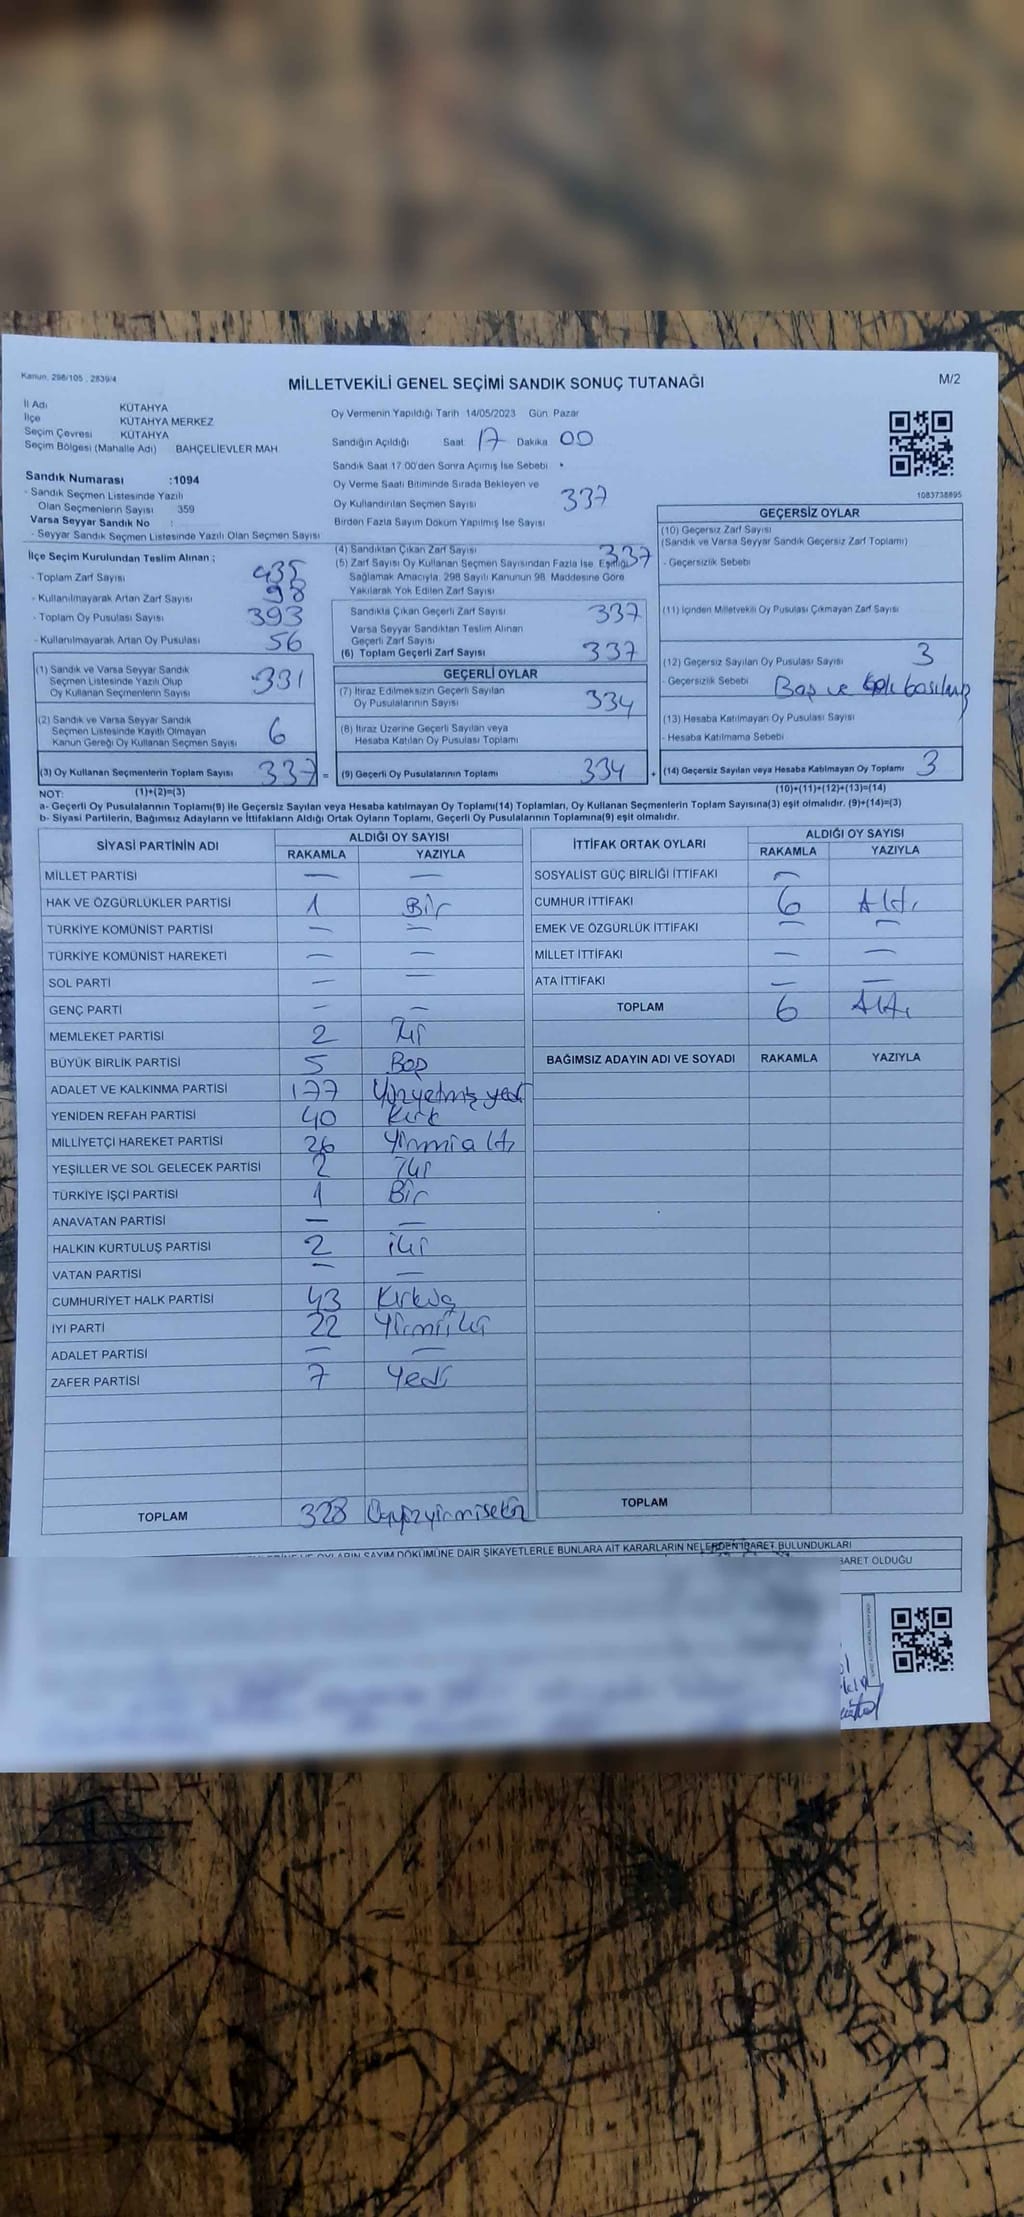 Kanun. 298/105 . 2839/4
MİLLETVEKİLİ GENEL SEÇİMİ SANDIK SONUÇ TUTANAĞI
M/2
İl Adı KÜTAHYA
İlçe KÜTAHYA MERKEZ
Seçim Çevresi KÜTAHYA
Seçim Bölgesi (Mahalle Adı) BAHÇELİEVLER MAH
Sandık Numarası :1094
- Sandık Seçmen Listesinde Yazılı
Olan Seçmenlerin Sayısı 359
Varsa Seyyar Sandık No :
- Seyyar Sandık Seçmen Listesinde Yazılı Olan Seçmen Sayısı
Oy Vermenin Yapıldığı Tarih 14/05/2023 Gün Pazar
Sandığın Açıldığı Saat 17 Dakika 00
Sandık Saat 17:00'den Sonra Açılmış İse Sebebi
Oy Verme Saati Bitiminde Sırada Bekleyen ve
Oy Kullandırılan Seçmen Sayısı 337
Birden Fazla Sayım Döküm Yapılmış İse Sayısı
1083738895
İlçe Seçim Kurulundan Teslim Alınan ;
- Toplam Zarf Sayısı 435
- Kullanılmayarak Artan Zarf Sayısı 98
- Toplam Oy Pusulası Sayısı 393
- Kullanılmayarak Artan Oy Pusulası 56
(1) Sandık ve Varsa Seyyar Sandık
Seçmen Listesinde Yazılı Olup
Oy Kullanan Seçmenlerin Sayısı 331
(2) Sandık ve Varsa Seyyar Sandık
Seçmen Listesinde Kayıtlı Olmayan
Kanun Gereği Oy Kullanan Seçmen Sayısı 6
(3) Oy Kullanan Seçmenlerin Toplam Sayısı 337 =
(4) Sandıktan Çıkan Zarf Sayısı 337
(5) Zarf Sayısı Oy Kullanan Seçmen Sayısından Fazla İse Eşitliği
Sağlamak Amacıyla 298 Sayılı Kanunun 98. Maddesine Göre
Yakılarak Yok Edilen Zarf Sayısı
Sandıkta Çıkan Geçerli Zarf Sayısı 337
Varsa Seyyar Sandıktan Teslim Alınan
Geçerli Zarf Sayısı
(6) Toplam Geçerli Zarf Sayısı 337
GEÇERLİ OYLAR
(7) İtiraz Edilmeksizin Geçerli Sayılan
Oy Pusulalarının Sayısı 334
(8) İtiraz Üzerine Geçerli Sayılan veya
Hesaba Katılan Oy Pusulası Toplamı
(9) Geçerli Oy Pusulalarının Toplamı 334 +
GEÇERSİZ OYLAR
(10) Geçersiz Zarf Sayısı
(Sandık ve Varsa Seyyar Sandık Geçersiz Zarf Toplamı)
- Geçersizlik Sebebi
(11) İçinden Milletvekili Oy Pusulası Çıkmayan Zarf Sayısı
(12) Geçersiz Sayılan Oy Pusulası Sayısı 3
- Geçersizlik Sebebi Boş ve
(13) Hesaba Katılmayan Oy Pusulası Sayısı
- Hesaba Katılmama Sebebi
(14) Geçersiz Sayılan veya Hesaba Katılmayan Oy Toplamı 3
NOT: (1)+(2)=(3)
(10)+(11)+(12)+(13)=(14)
a- Geçerli Oy Pusulalarının Toplamı(9) ile Geçersiz Sayılan veya Hesaba katılmayan Oy Toplamı(14) Toplamları, Oy Kullanan Seçmenlerin Toplam Sayısına(3) eşit olmalıdır. (9)+(14)=(3)
b- Siyasi Partilerin, Bağımsız Adayların ve İttifakların Aldığı Ortak Oyların Toplamı, Geçerli Oy Pusulalarının Toplamına(9) eşit olmalıdır.
SİYASİ PARTİNİN ADI ALDIĞI OY SAYISI
RAKAMLA YAZIYLA
MİLLET PARTİSİ — —
HAK VE ÖZGÜRLÜKLER PARTİSİ 1 Bir
TÜRKİYE KOMÜNİST PARTİSİ — —
TÜRKİYE KOMÜNİST HAREKETİ — —
SOL PARTİ — —
GENÇ PARTİ — —
MEMLEKET PARTİSİ 2 İki
BÜYÜK BİRLİK PARTİSİ 5 Beş
ADALET VE KALKINMA PARTİSİ 177 Yüzyetmiş yedi
YENİDEN REFAH PARTİSİ 40 Kırk
MİLLİYETÇİ HAREKET PARTİSİ 26 Yirmialtı
YEŞİLLER VE SOL GELECEK PARTİSİ 2 İki
TÜRKİYE İŞÇİ PARTİSİ 1 Bir
ANAVATAN PARTİSİ — —
HALKIN KURTULUŞ PARTİSİ 2 iki
VATAN PARTİSİ — —
CUMHURİYET HALK PARTİSİ 43 Kırküç
İYİ PARTİ 22 Yirmiiki
ADALET PARTİSİ — —
ZAFER PARTİSİ 7 Yedi
TOPLAM 328 Üçyüzyirmisekiz
İTTİFAK ORTAK OYLARI ALDIĞI OY SAYISI
RAKAMLA YAZIYLA
SOSYALİST GÜÇ BİRLİĞİ İTTİFAKI —
CUMHUR İTTİFAKI 6 Altı
EMEK VE ÖZGÜRLÜK İTTİFAKI — —
MİLLET İTTİFAKI — —
ATA İTTİFAKI — —
TOPLAM 6 Altı
BAĞIMSIZ ADAYIN ADI VE SOYADI RAKAMLA YAZIYLA
TOPLAM
OYLARIN SAYIM DÖKÜMÜNE DAİR ŞİKAYETLERLE BUNLARA AİT KARARLARIN NELERDEN İBARET BULUNDUKLARI
BARET OLDUĞU